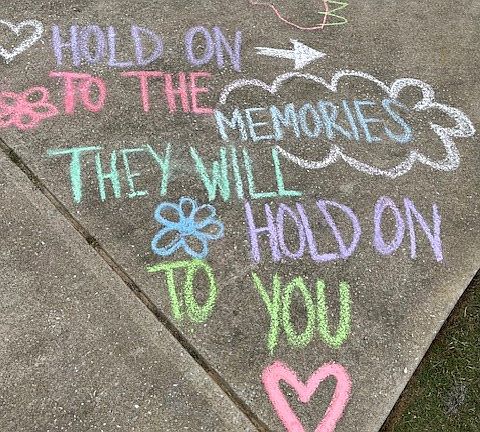 HOLD ON
TO THE
MEMORIES
THEY WILL
HOLD ON
TO YOU